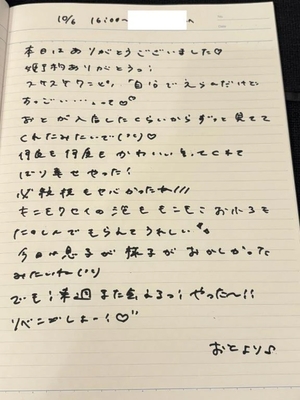 10/6 16:00~
本日はありがとうございました♡
姫予約ありがとうっ!
スケスケワンピ、「自分でえらんだけど
すっごい……って♡"
おとが入店したくらいからずっと見てて
くれたみたいで(;;)♡
何度も何度もかわいい言ってくれて
ばり幸せやった!
必殺技もせばかったね///
モコモクセイの泡ももこもこお风ろも
たのしんでもらえてうれしい
今日は息子が様子がおかしかった
みたいね(;;)
でも!来週また会えるっ!やった~!!
リベンジしよー!♡"
おとより♪